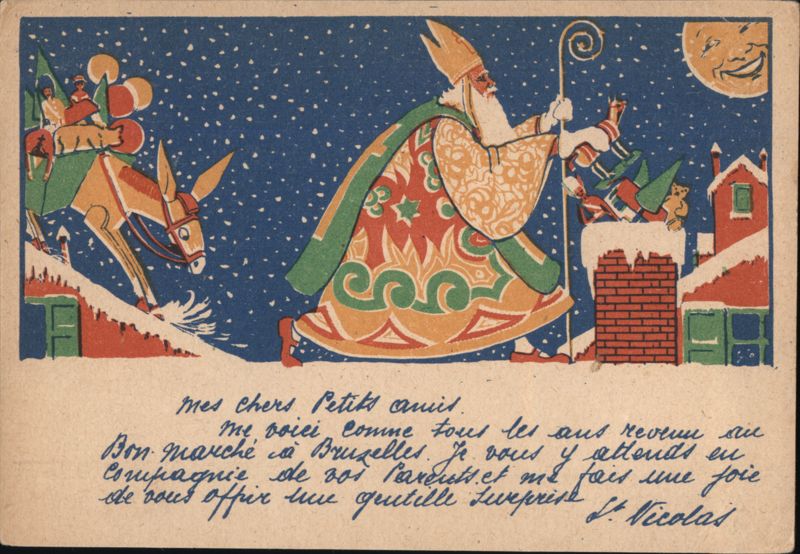 Mes chers Petits amis.
Me voici comme tous les ans revenu au
Bon-Marché à Bruxelles. Je vous y attends en
Compagnie de vos Parents et me fais une joie
de vous offrir une gentille surprise
St. Nicolas